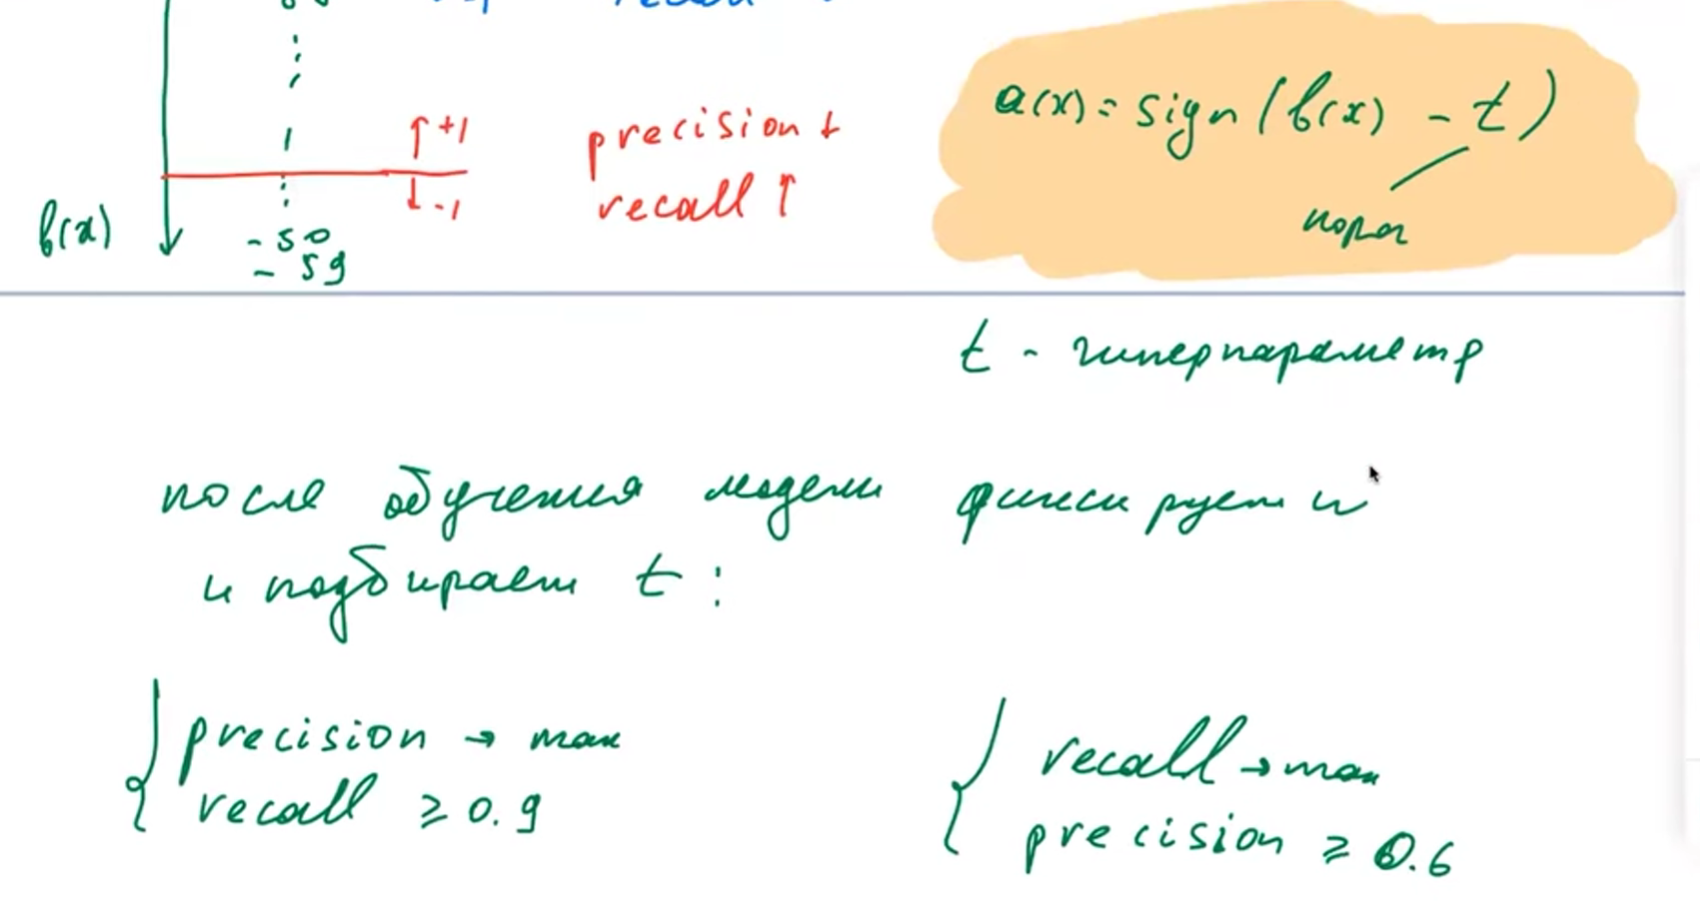 precision ↓
recall ↑
↑ +1
↓ -1
b(x)
- 50
- 59
a(x) = sign (b(x) - t)
порог
t - гиперпараметр
после обучения модели фиксируем w
и подбираем t :
precision → max
recall ⩾ 0.9
recall → max
precision ⩾ 0.6